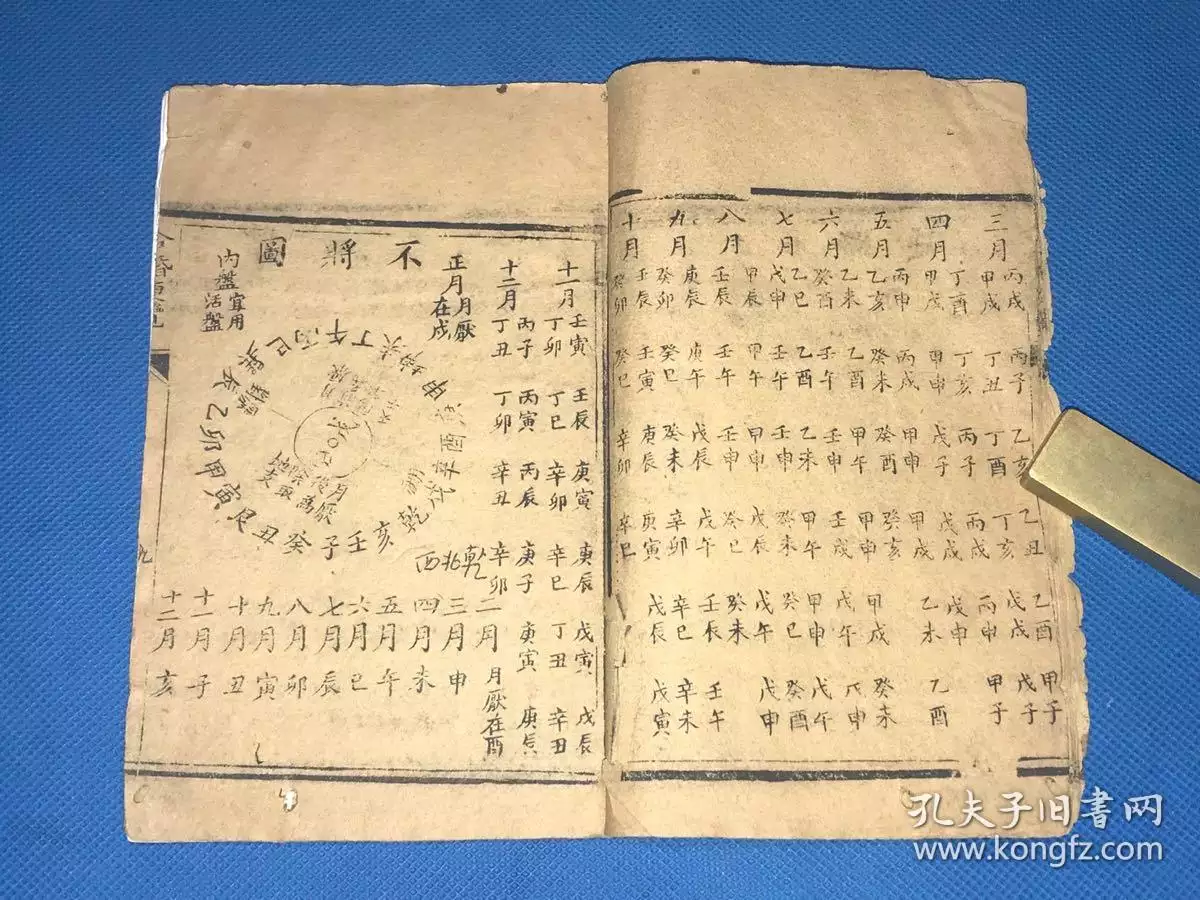 三月
丙戌 丙子 乙亥 乙丑 乙酉 甲子
甲戌 丁丑 丁酉 丁亥 戊戌 戊子
四月
丁酉 丁亥 丙子 丙戌 丙申 甲子
甲戌 甲申 戊子 戊戌 戊申
乙未 乙酉
五月
丙申 丙戌 甲申 甲戌 甲戌 癸未
乙亥 癸未 癸酉 癸亥
六月
乙未 乙酉 甲午 甲申 戊午 戊申
癸酉 壬午 壬申 壬戌 甲申 戊午
七月
乙巳 乙酉 乙未 甲午 癸巳 癸酉
戊申 壬午 壬申 癸未 戊午 戊申
八月
甲辰 甲午 甲申 戊辰 癸未
壬辰 壬午 壬申 癸巳 壬辰 壬午
九月
庚辰 庚午 戊辰 戊午 辛巳 辛未
癸卯 癸巳 癸未 辛卯
十月
壬辰 壬寅 庚辰 庚寅 戊辰 戊寅
癸卯 癸巳 辛卯 辛巳
十一月
壬寅 壬辰 庚寅 庚辰 戊寅 戊辰
丁卯 丁巳 辛卯 辛巳 丁丑 辛丑
十二月
丙子 丙寅 丙辰 庚子 庚寅 庚辰
丁丑 丁卯 辛丑 辛卯
不將圖
正月 月厭在戌
內盤宜用活盤
丁午丙巳
辰乙卯甲寅艮丑癸子壬亥乾戌辛酉
月厭
乾兆西
二月 月厭在酉
三月申
四月未
五月午
六月巳
七月辰
八月卯
九月寅
十月丑
十一月子
十二月亥
九
孔夫子旧书网
www.kongfz.com